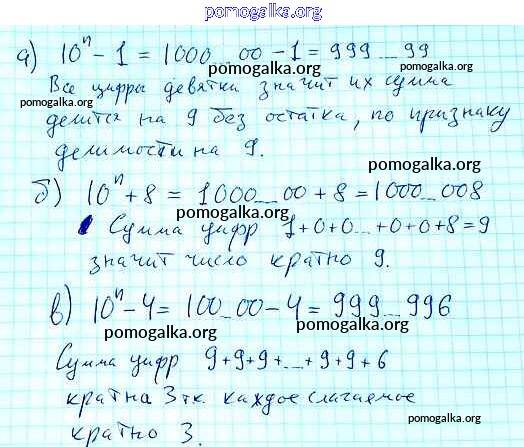 pomogalka.org
а) 10ⁿ - 1 = 1000...00 - 1 = 999...99
pomogalka.org
pomogalka.org
Все цифры девятки значит их сумма
pomogalka.org
делится на 9 без остатка, по признаку
делимости на 9.
pomogalka.org
pomogalka.org
б) 10ⁿ + 8 = 1000...00 + 8 = 1000...008
pomogalka.org
Сумма цифр 1+0+0...+0+0+8=9
значит число кратно 9.
pomogalka.org
в) 10ⁿ - 4 = 100...00 - 4 = 999...996
pomogalka.org
pomogalka.org
Сумма цифр 9+9+9+...+9+9+6
pomogalka.org
кратна 3 т.к. каждое слагаемое
pomogalka.org
кратно 3.